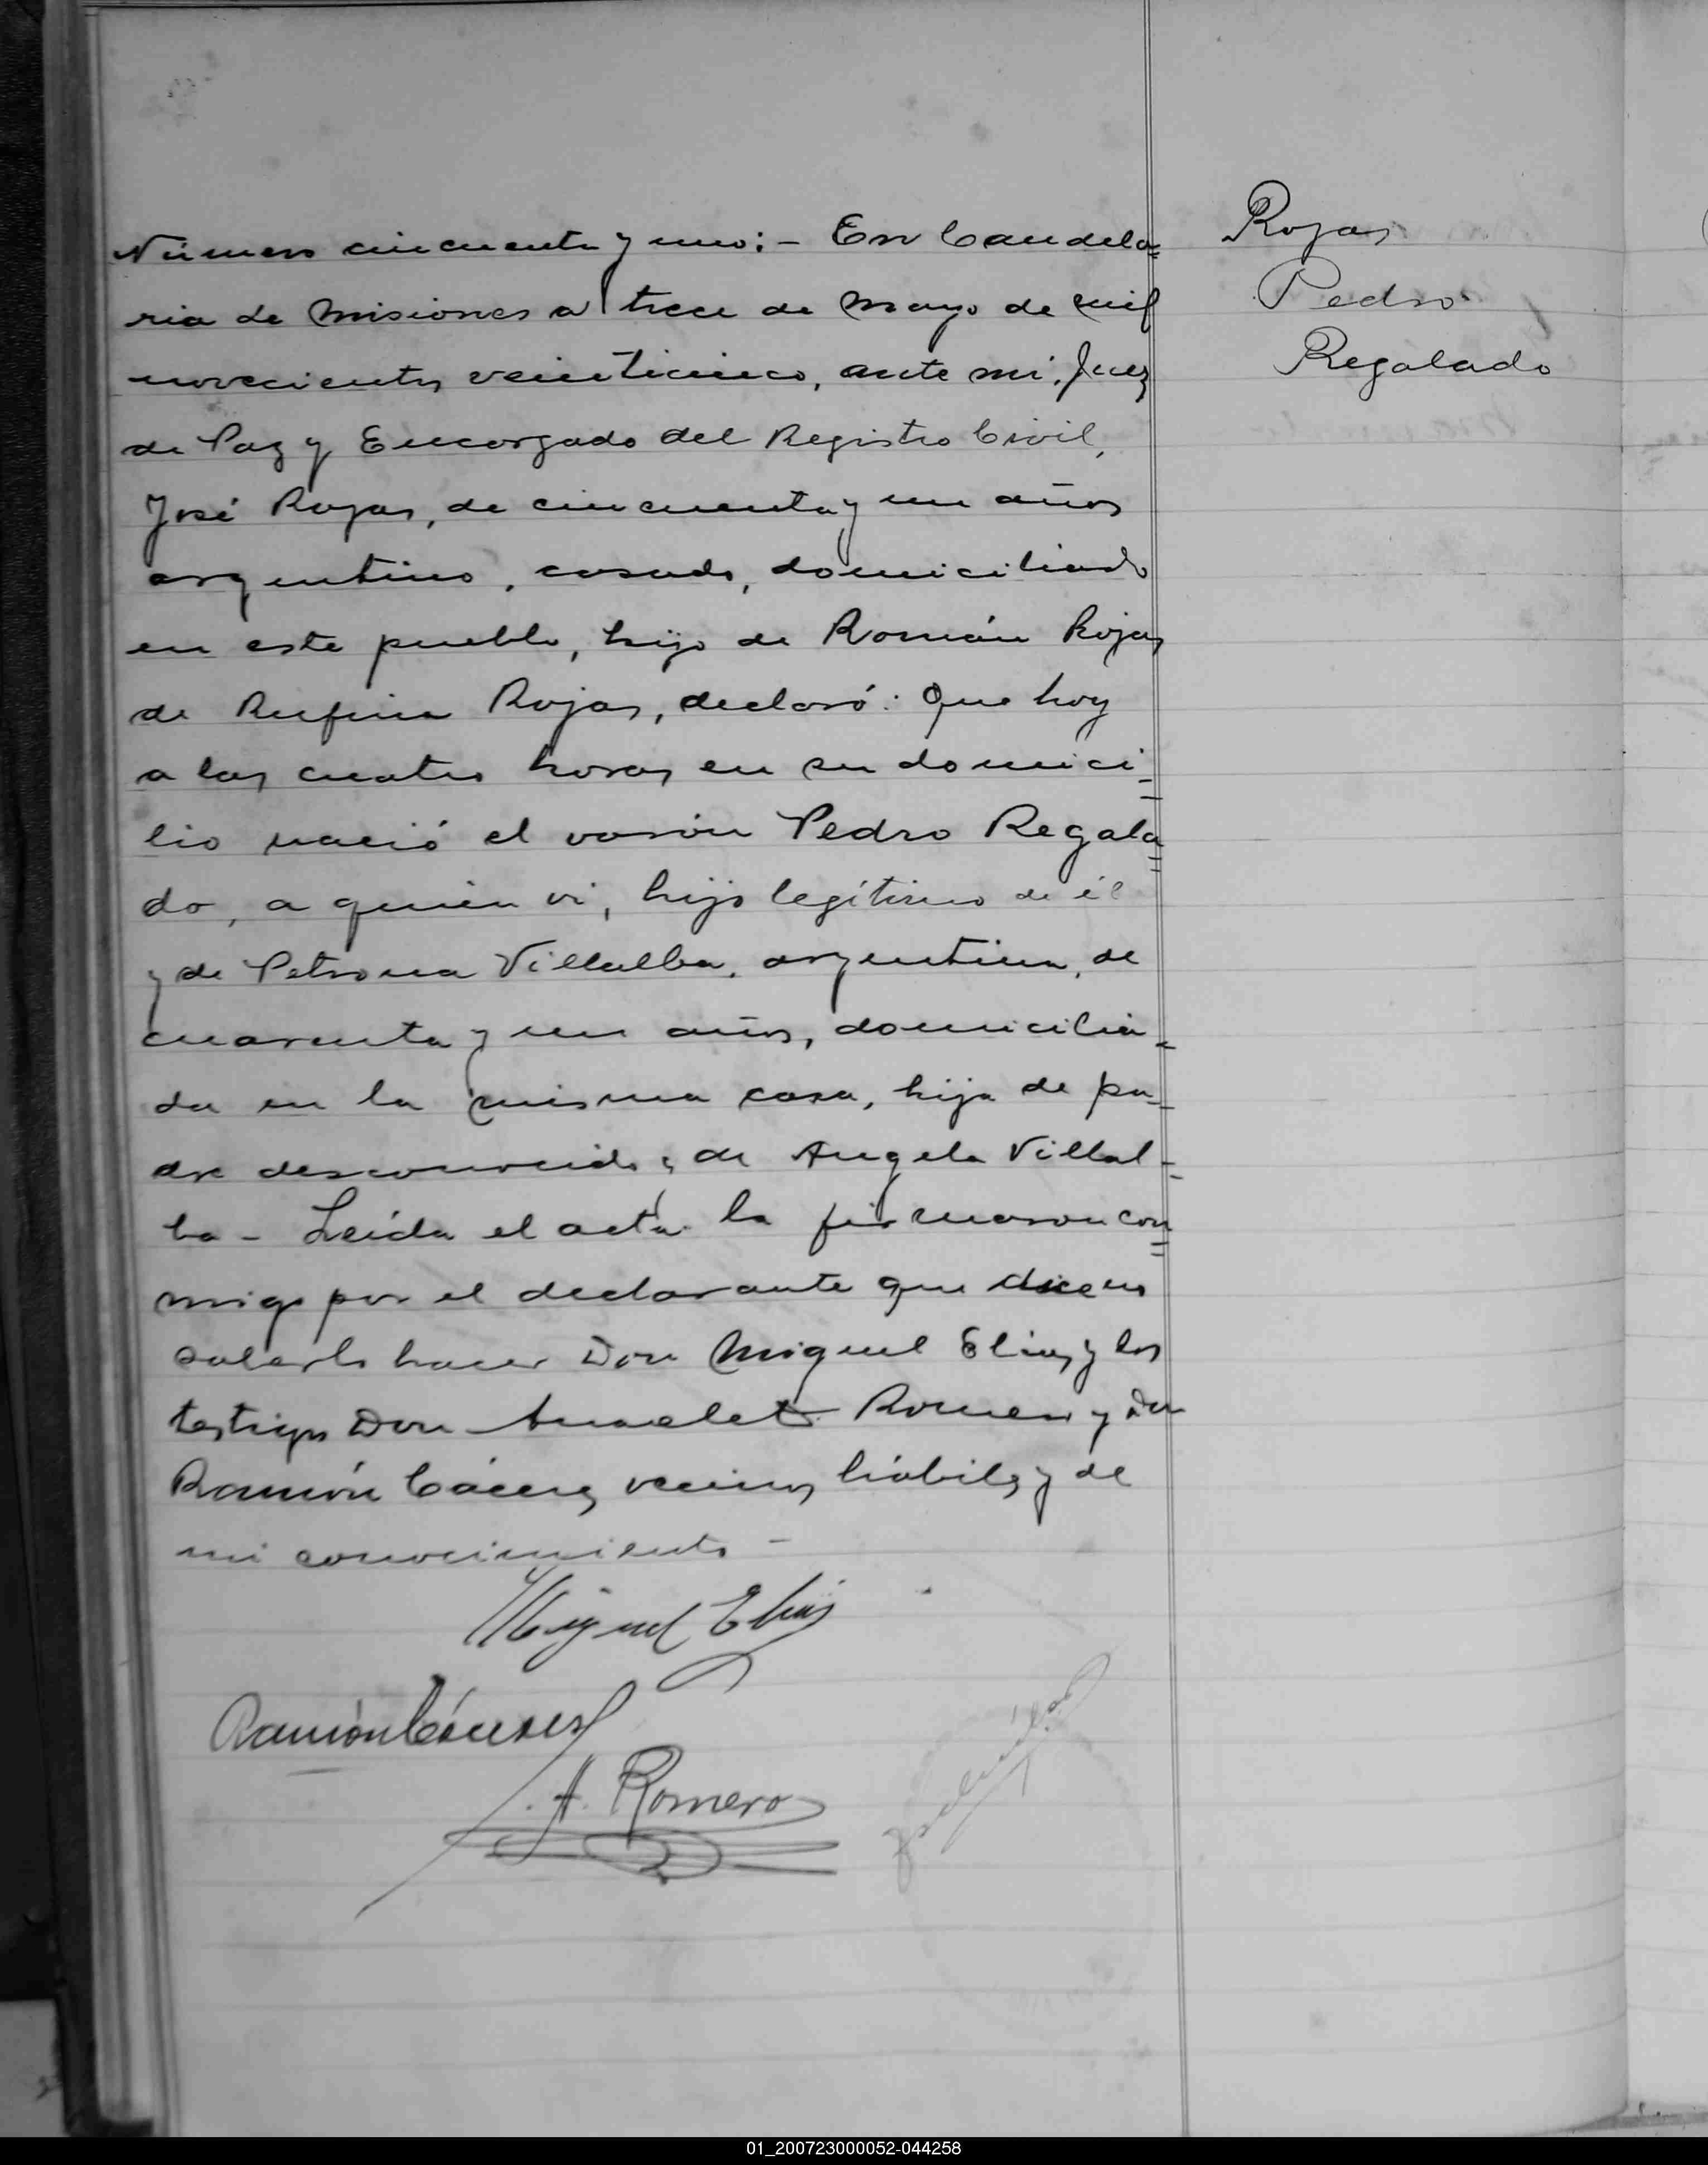 Rojas
Pedro
Regalado
Número cincuenta y uno:- En Candela=
ria de Misiones a trece de Mayo de mil
novecientos veinticinco, ante mi, Juez
de Paz y Encargado del Registro Civil,
José Rojas, de cincuenta y un años
argentino, casado, domiciliado
en este pueblo, hijo de Román Rojas
de Rufina Rojas, declaró: Que hoy
a las cuatro horas en su domici=
lio nació el varón Pedro Regala=
do, a quien vi, hijo legítimo de él
y de Petrona Villalba, argentina, de
cuarenta y un años, domicilia=
da en la misma casa, hija de pa=
dre desconocido y de Angela Villal=
ba - Leída el acta la firmaron con=
migo por el declarante que dice no
saberlo hacer Don Miguel Elias y los
testigos Don Anacleto Romero y Don
Ramón Cáceres vecinos hábiles y de
mi conocimiento -
Miguel Elias
Ramón Cáceres
A. Romero
01_200723000052-044258